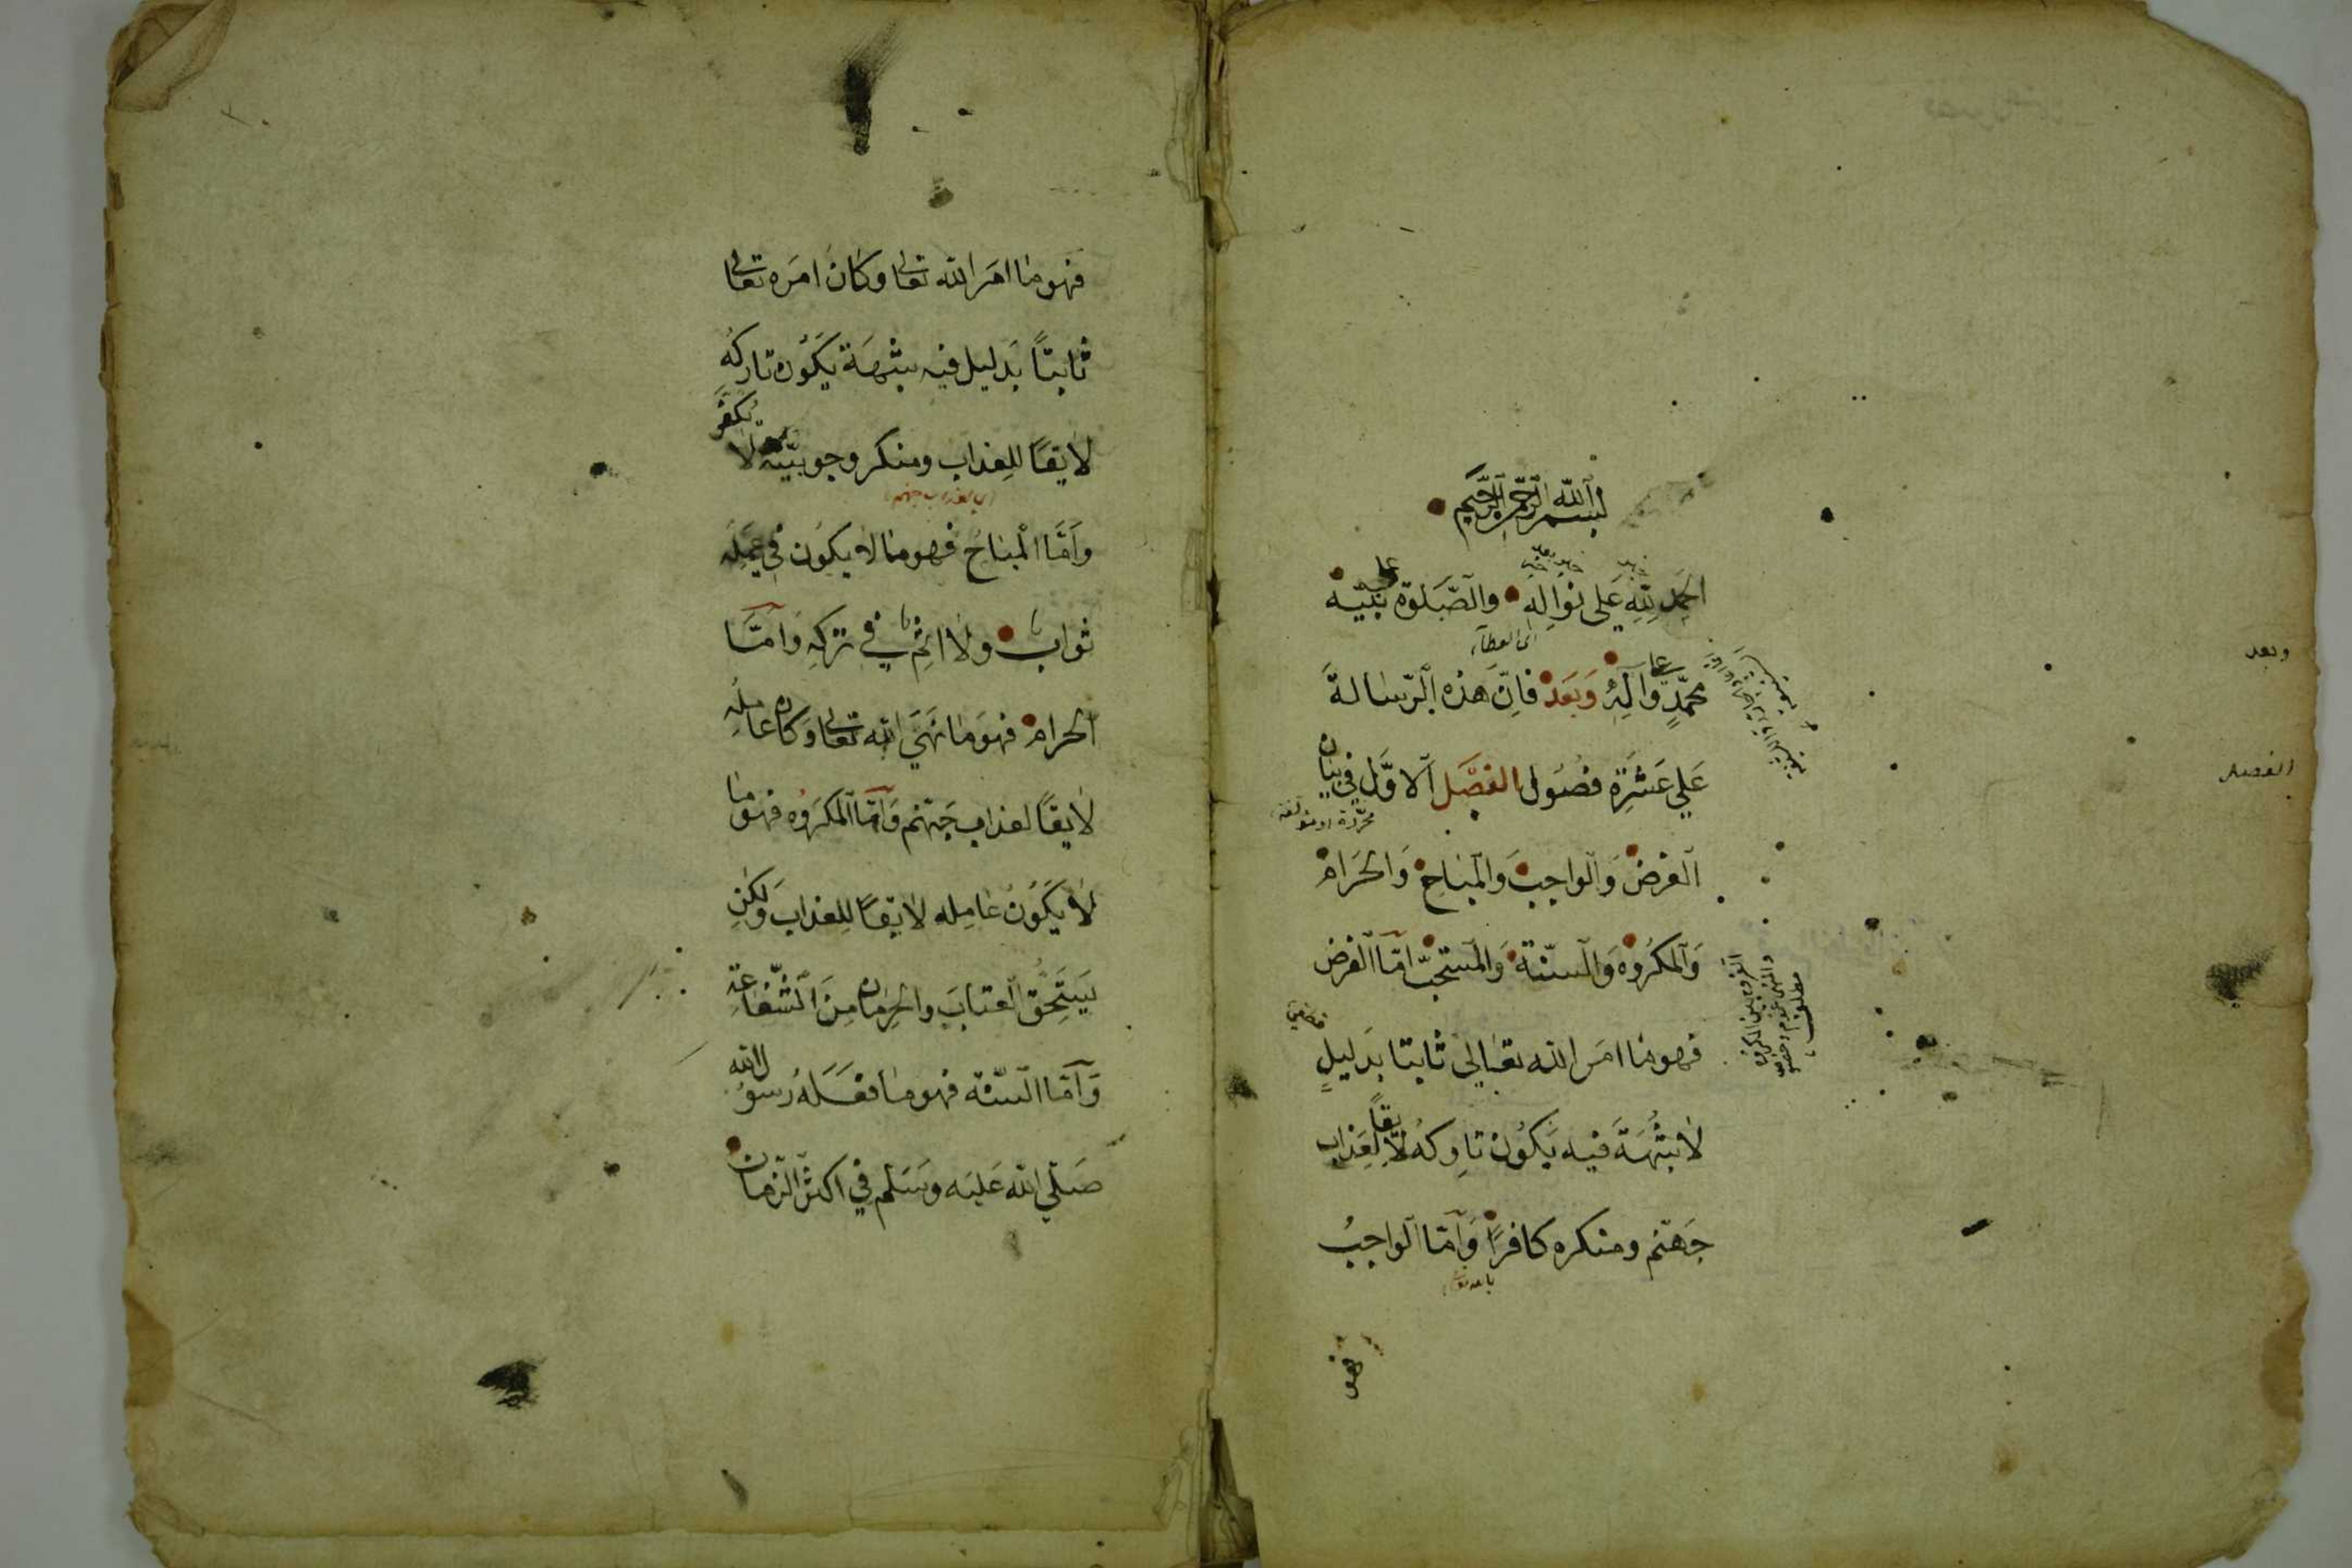 بسم الله الرحمن الرحيم
الحمد لله على نواله والصلوة على نبيه
اى العطاء
محمد وعلى آله وبعد فان هذه الرسالة
على عشرة فصول الفصل الاول في بيان
الفرض والواجب والمباح والحرام
والمكروه والسنة والمستحب اما الفرض
فهو ما امر الله تعالى ثابتا بدليل
قطعي
لا شبهة فيه يكون تاركه لايقا لعذاب
جهنم ومنكره كافرا واما الواجب
فهو
وبعد
الفصل
فهو ما امر الله تعالى وكان امره تعالى
ثابتا بدليل فيه شبهة يكون تاركه
لايقا للعذاب ومنكر وجوبيته لا يكفر
اى بعذاب جهنم
واما المباح فهو ما لا يكون في عمله
ثواب ولا اثم في تركه واما
الحرام فهو ما نهى الله تعالى وكان عامله
لايقا لعذاب جهنم واما المكروه فهو ما
لا يكون عامله لايقا للعذاب ولكن
يستحق العتاب والحرمان من الشفاعة
واما السنة فهو ما فعله رسول الله
صلى الله عليه وسلم في اكثر الزمان